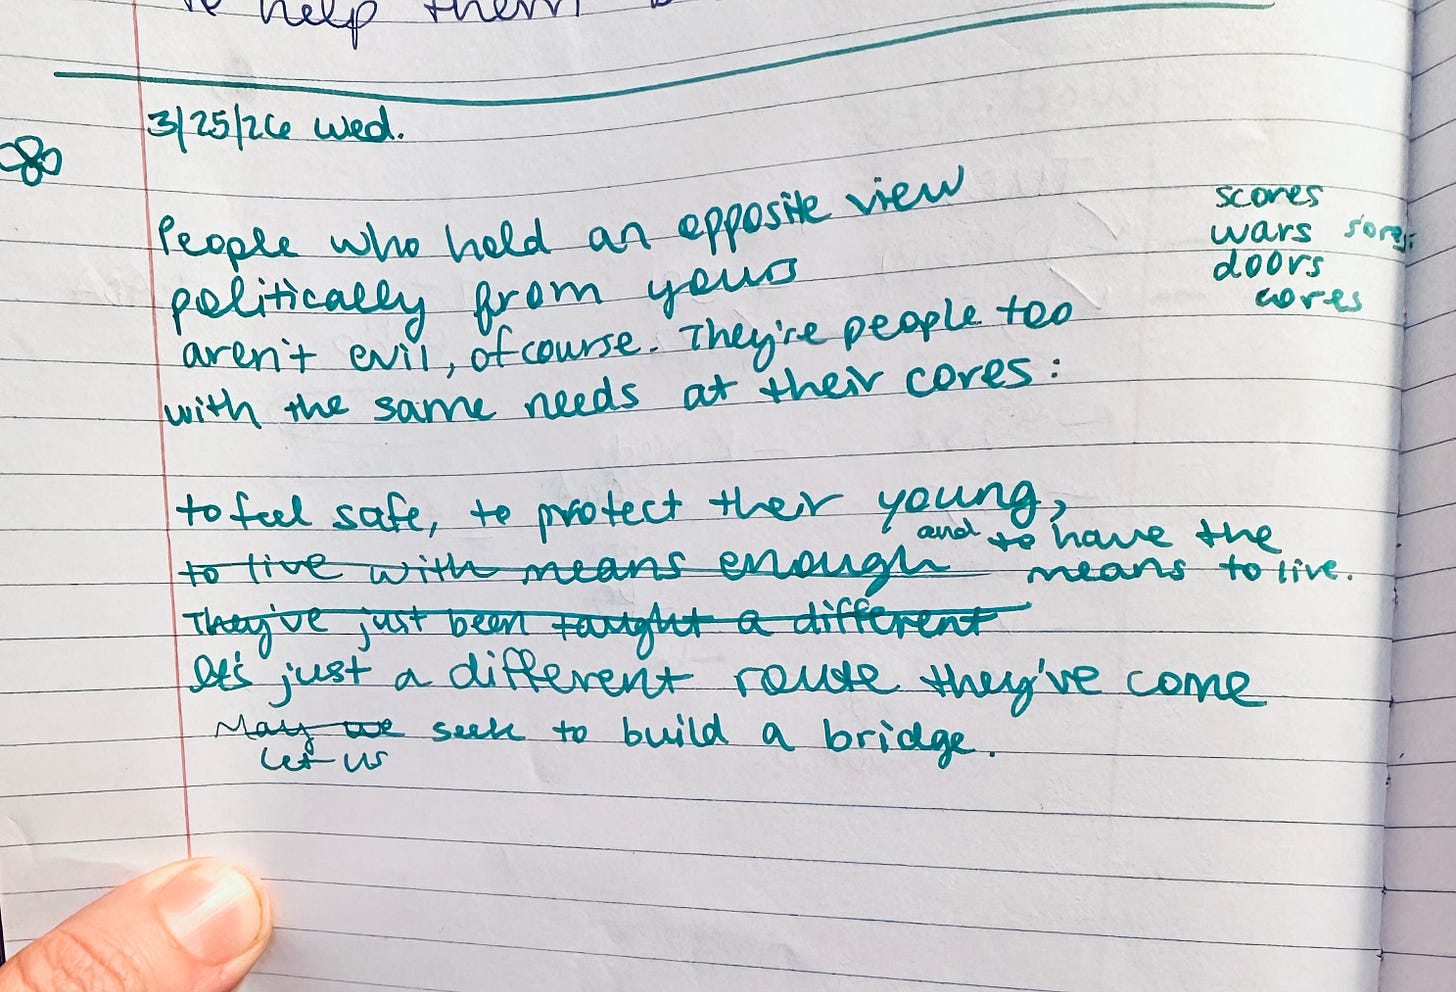 to help them
3/25/26 Wed.
People who hold an opposite view
politically from yours
aren't evil, of course. They're people too
with the same needs at their cores:
scores
wars sores
doors
cores
to feel safe, to protect their young,
and to have the
to live with means enough means to live.
They've just been taught a different
It's just a different route they've come
May we seek to build a bridge.
Let us